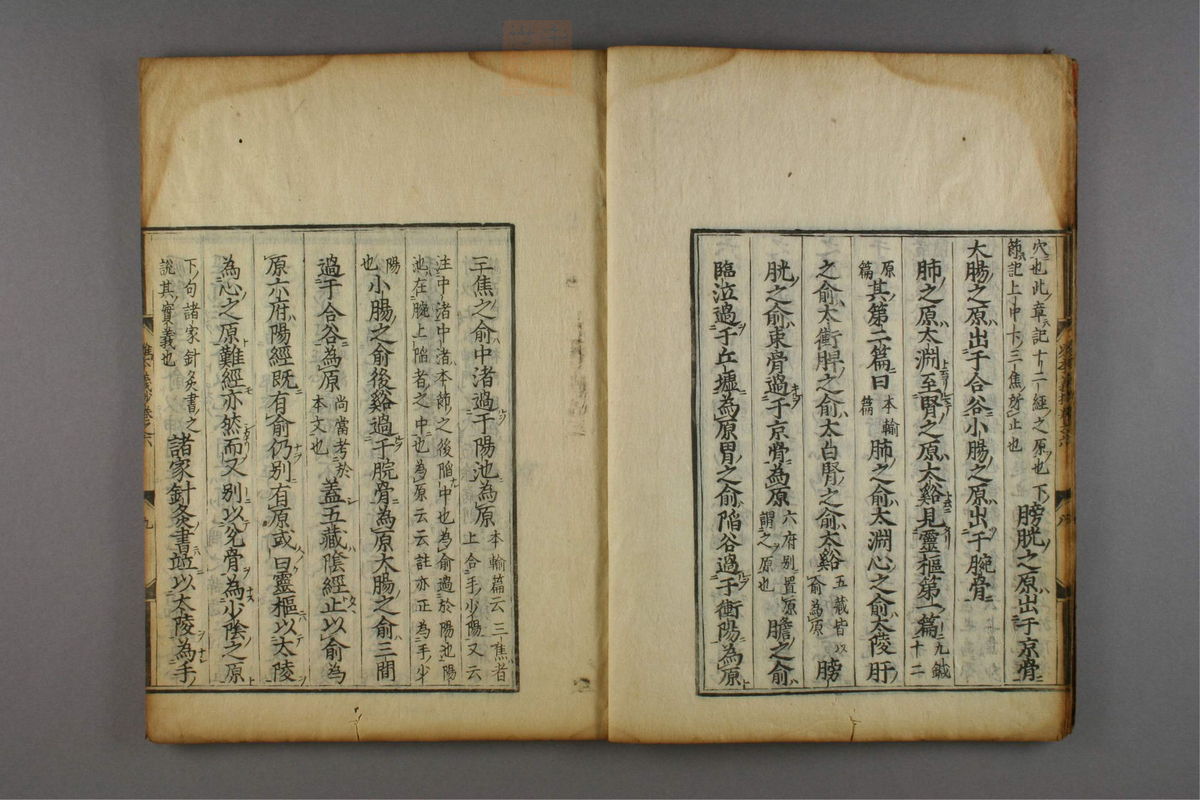 穴也此章記十二經之原也下
節記上中下三焦所止也
膀胱之原出于京骨
大腸之原出于合谷小腸之原出于腕骨
肺之原太淵至腎之原太谿見靈樞第一篇
九鍼
十二
原
篇
其第二篇曰
本輸
篇
肺之俞太淵心之俞太陵肝
之俞太衝脾之俞太白腎之俞太谿
五藏皆以
俞為原
膀
胱之俞束骨過于京骨為原
六府別置原
謂之原也
膽之俞
臨泣過于丘墟為原胃之俞陷谷過于衝陽為原
三焦之俞中渚過于陽池為原
本輸篇云三焦者
上合手少陽又云
注中渚中渚本節之後陷中也為俞過於陽池陽
池在腕上陷者之中也為原云云註亦正為手少
陽
也
小腸之俞後谿過于腕骨為原大腸之俞三間
過于合谷為原
尚當考於
本文也
蓋五藏陰經止以俞為
原六府陽經既有俞仍別有原或曰靈樞以太陵
為心之原難經亦然而又別以兊骨為少陰之原
下句諸家針灸書之
說其實義也
諸家針灸書並以太陵為手
九